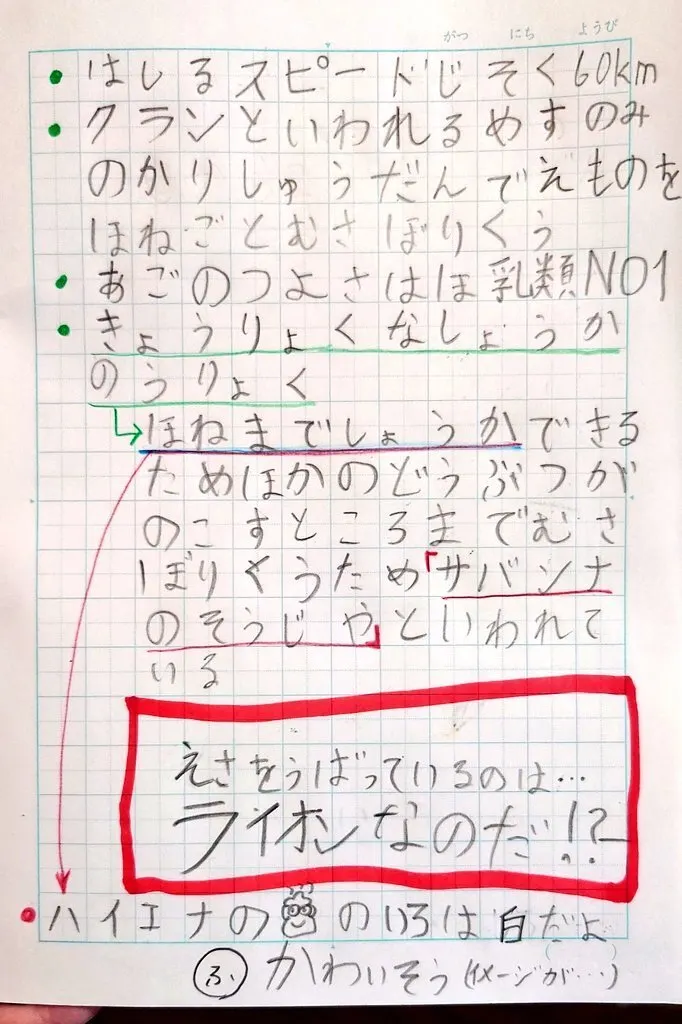 がつ にち ようび
・はしるスピードじそく60km
・クランといわれるめすのみ
のかりしゅうだんでえものを
ほねごとむさぼりくう
・あごのつよさはほ乳類NO1
・きょうりょくなしょうか
のうりょく
↳ほねまでしょうかできる
ためほかのどうぶつが
のこすところまでむさ
ぼりくうため「サバンナ
のそうじや」といわれて
いる
えさをうばっているのは…
ライオンなのだ!?
・ハイエナの💩のいろは白だよ
ふ かわいそう(イメージが…)